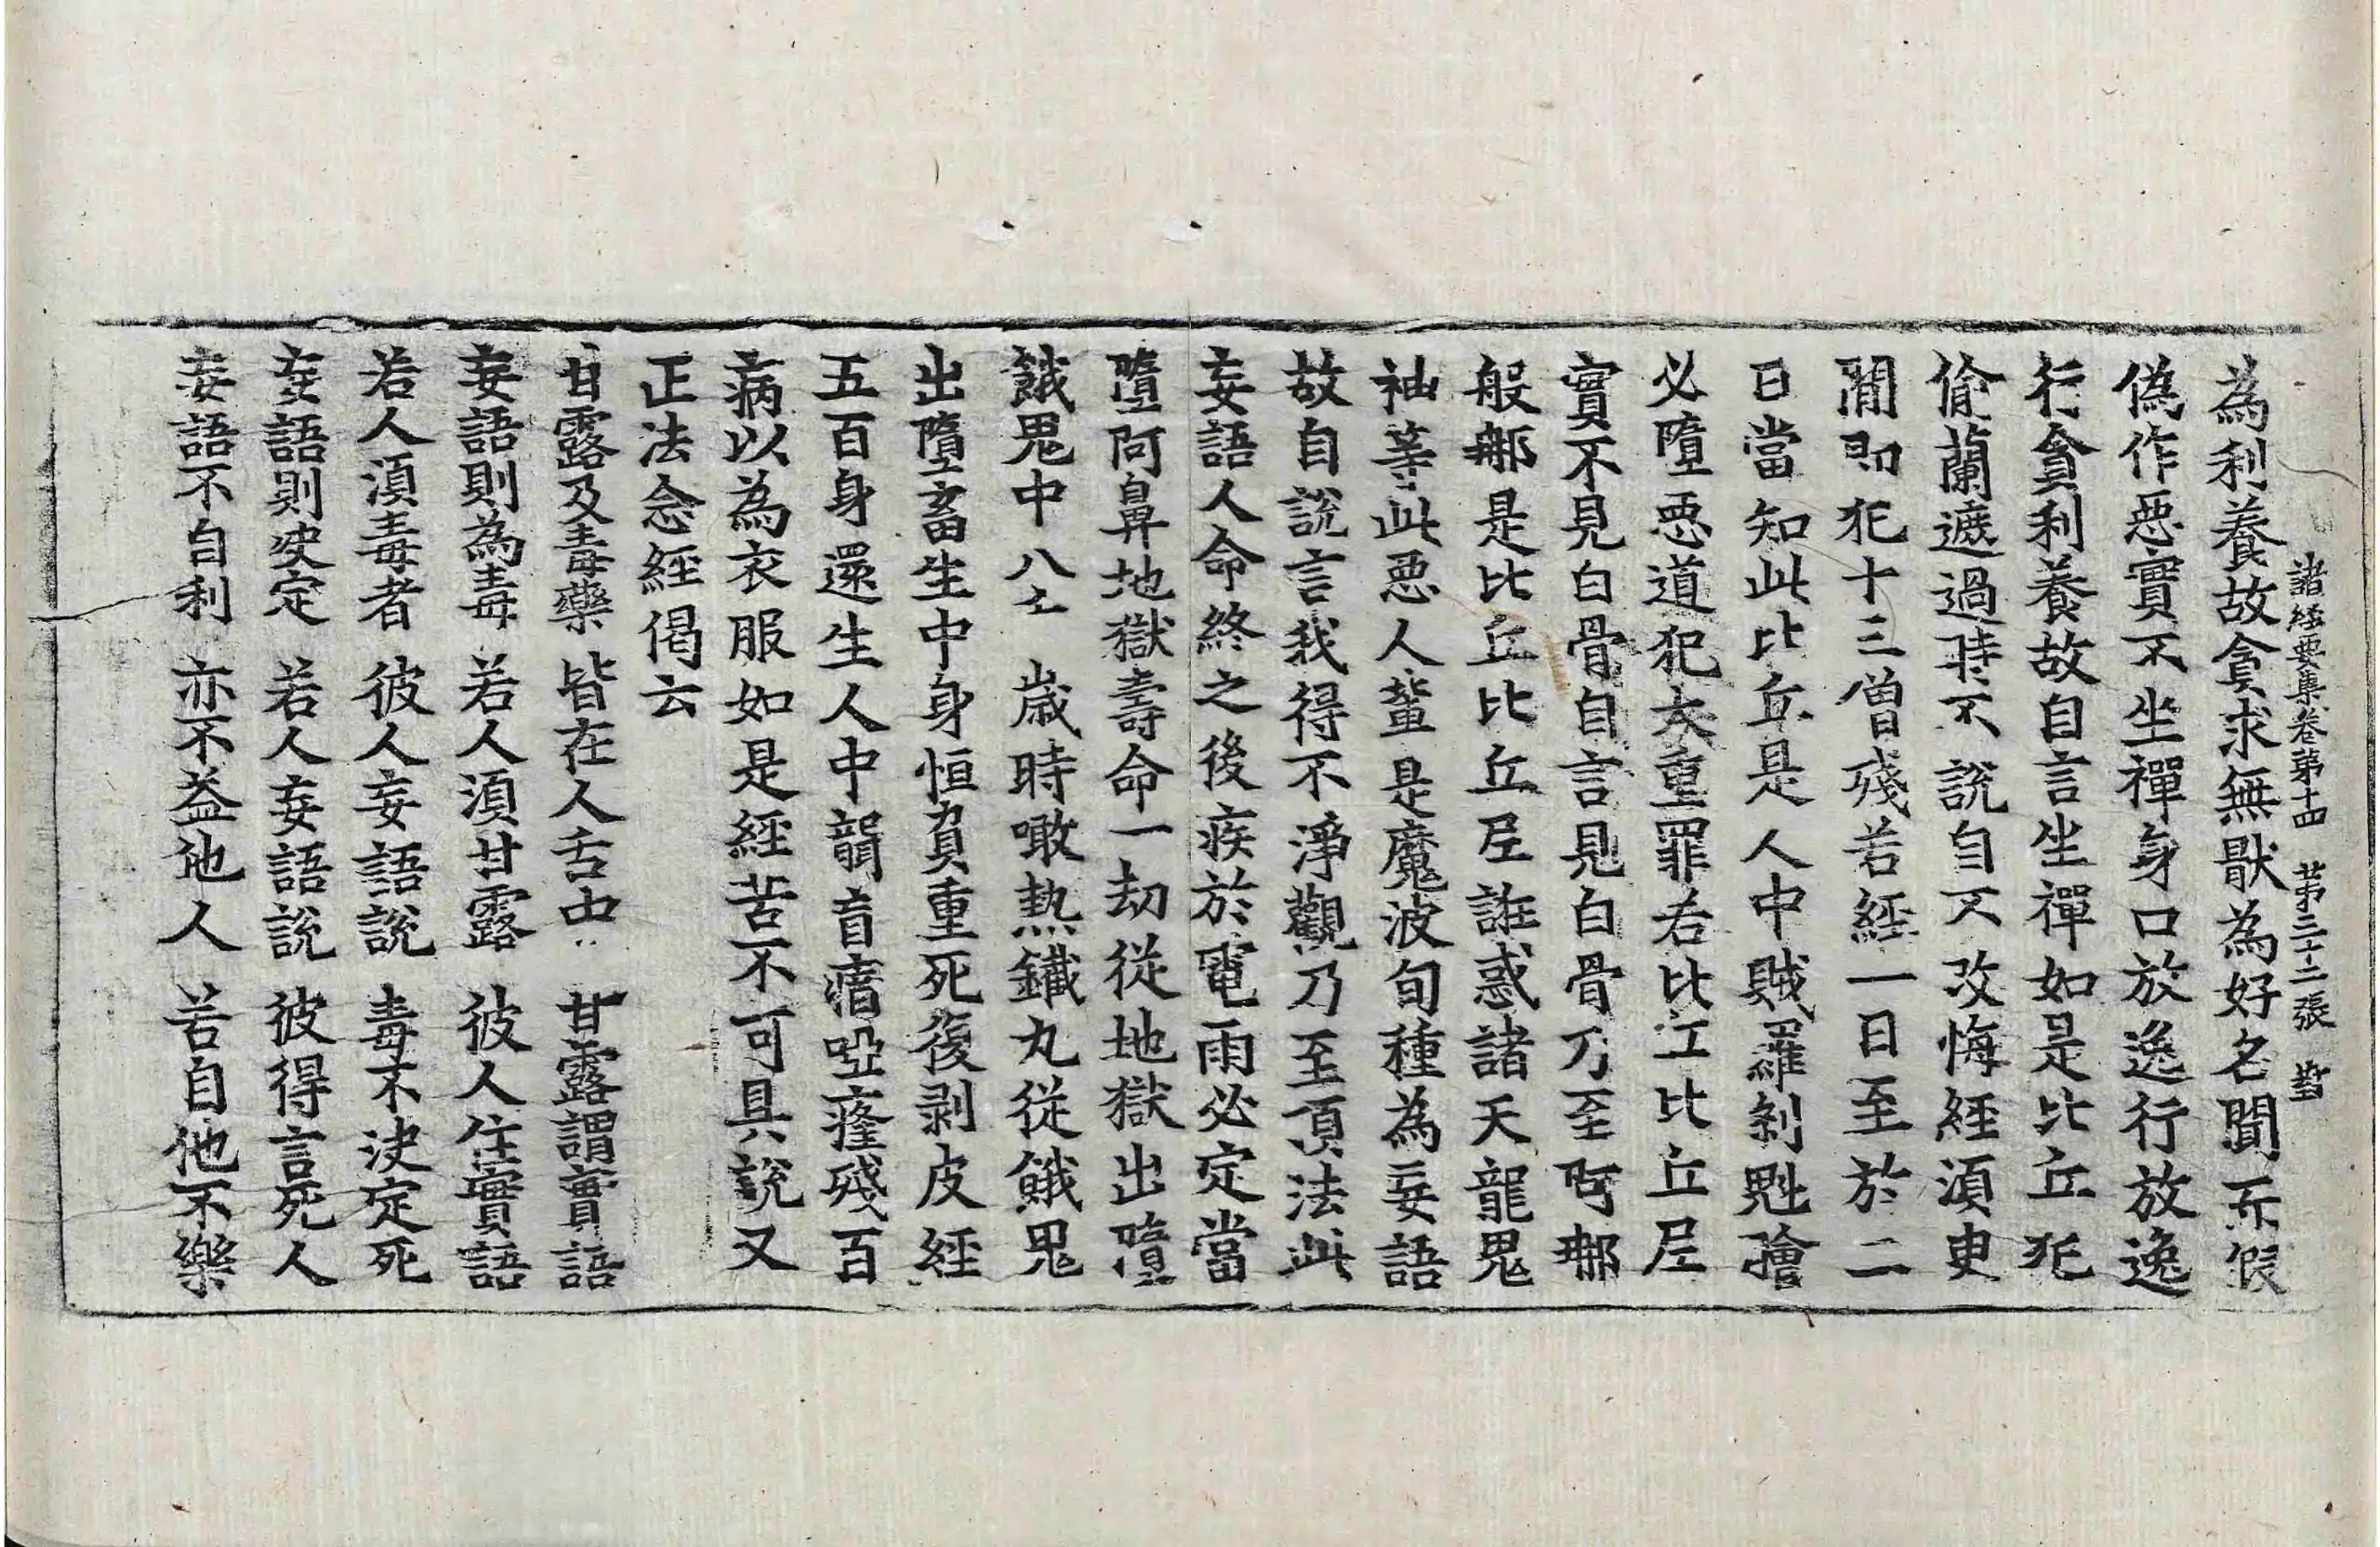 諸経要集卷第十四　第三十二張
為利養故貪求無猒為好名聞而假
偽作惡實不坐禪身口放逸行放逸
行貪利養故自言坐禪如是比丘犯
偷蘭遮過時不說自不改悔經須臾
閒即犯十三僧殘若經一日至於二
日當知此比丘是人中賊羅剎魁膾
必墮惡道犯大重罪若比丘比丘尼
實不見白骨自言見白骨乃至阿那
般那是比丘比丘尼誑惑諸天龍鬼
神等此惡人輩是魔波旬種為妄語
故自說言我得不淨觀乃至頂法此
妄語人命終之後疾於電雨必定當
墮阿鼻地獄壽命一劫從地獄出墮
餓鬼中八千歲時噉熱鐵丸從餓鬼
出墮畜生中身恒負重死後剥皮經
五百身還生人中聾盲瘖啞癃殘百
病以為衣服如是經苦不可具說又
正法念經偈云
甘露及毒藥　皆在人舌中　甘露謂實語
妄語則為毒　若人須甘露　彼人住實語
若人須毒者　彼人妄語說　毒不決定死
妄語則決定　若人妄語說　彼得言死人
妄語不自利　亦不益他人　若自他不樂